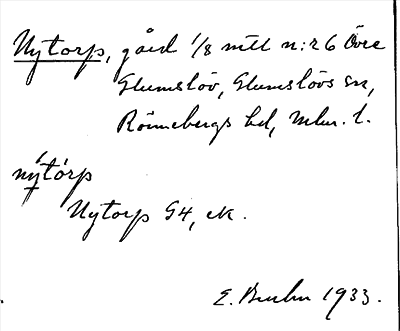 Nytorp, gård 1/8 mtl n:r 6 Övre
Glumslöv, Glumslövs sn,
Rönnebergs hd, Mlm. l.
nýtórp
Nytorp G4, ek.
E. Bruhn 1933.